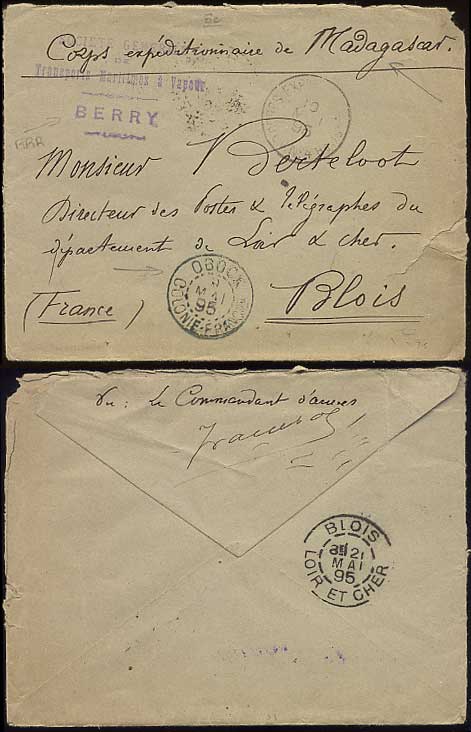 Corps expéditionnaire de Madagascar.
Transports Maritimes à Vapeur
BERRY
Monsieur Berteloot
Directeur des Postes & Télégraphes du
département de Loir & cher.
(France)
Blois
OBOCK
MAI
95
COLONIE-FRANCAISE
Vu: Le Commandant d'armes
BLOIS
21
MAI
95
LOIR ET CHER